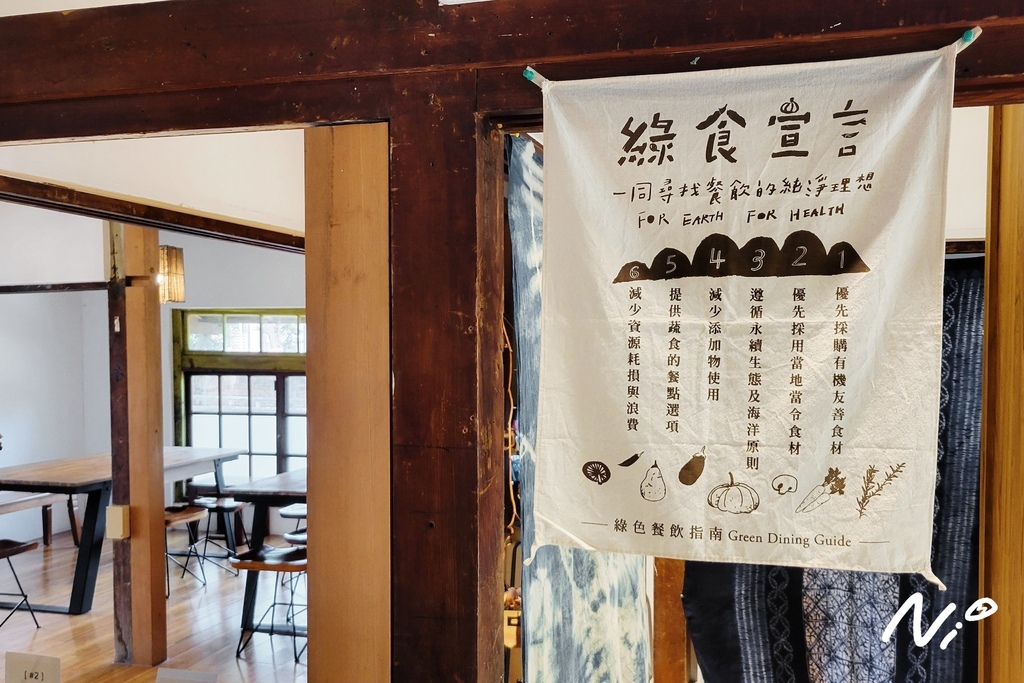 綠食宣言
一同尋找餐飲的純淨理想
FOR EARTH FOR HEALTH
1
優先採購有機友善食材
2
優先採用當地當令食材
3
遵循永續生態及海洋原則
4
減少添加物使用
5
提供蔬食的餐點選項
6
減少資源耗損與浪費
綠色餐飲指南 Green Dining Guide
[#2]
Nio